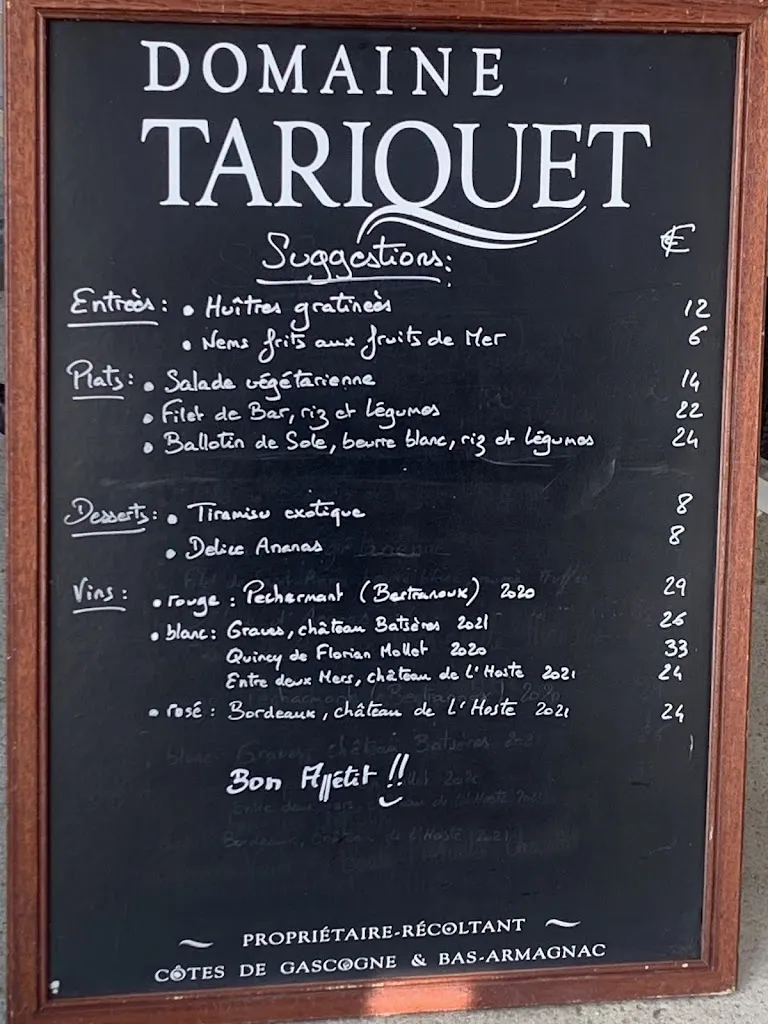 DOMAINE
TARIQUET
Suggestions: €
Entrées: • Huîtres gratinées 12
• Nems frits aux fruits de Mer 6
Plats: • Salade végétarienne 14
• Filet de Bar, riz et légumes 22
• Ballotin de Sole, beurre blanc, riz et légumes 24
Desserts: • Tiramisu exotique 8
• Delice Ananas 8
Vins: • rouge: Pecharmant (Bertranoux) 2020 29
• blanc: Graves, château Batsères 2021 26
Quincy de Florian Mollet 2020 33
Entre deux Mers, château de L'Hoste 2021 24
• rosé: Bordeaux, château de L'Hoste 2021 24
Bon Appétit !!
~ PROPRIÉTAIRE-RÉCOLTANT ~
CÔTES DE GASCOGNE & BAS-ARMAGNAC